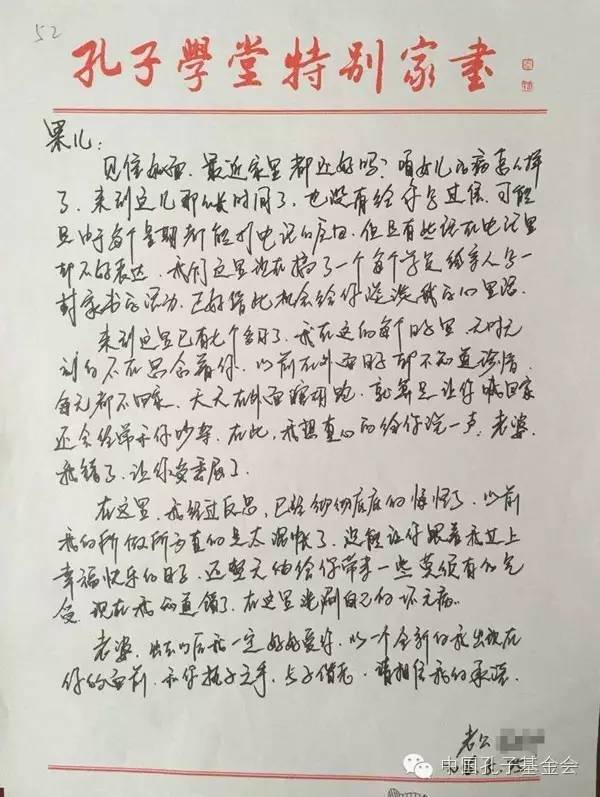 52
孔子學堂特别家書
果儿：
见信如面。最近家里都还好吗？咱女儿的病怎么样
了。来到这儿那么长时间了，也没有给你写过信。可能
是由于每个星期都能打电话的原因。但是有些话在电话里
却不好表达。我们这里现在搞了一个每个学员给亲人写一
封家书的活动。正好借此机会给你说说我的心里话。
来到这里已有七个多月了。我在这的每个日子里无时无
刻的不在思念着你。以前在外面时却不知道珍惜
每天都不回家。天天在外面瞎胡跑。就算是让你喊回家
还会经常和你吵架。在此，我想真心的给你说一声：老婆。
我错了，让你受委屈了。
在这里，我经过反思，已经彻彻底底的悔悟了。以前
我的所做所为真的是太混帐了。没能让你跟着我过上
幸福快乐的日子。还整天的给你带来一些莫须有的气
受。现在我知道错了。在这里洗刷自己的坏毛病。
老婆，出去以后我一定好好爱你，以一个全新的我出现在
你的面前，和你执子之手，与子偕老。请相信我的承诺。
老公
中国孔子基金会